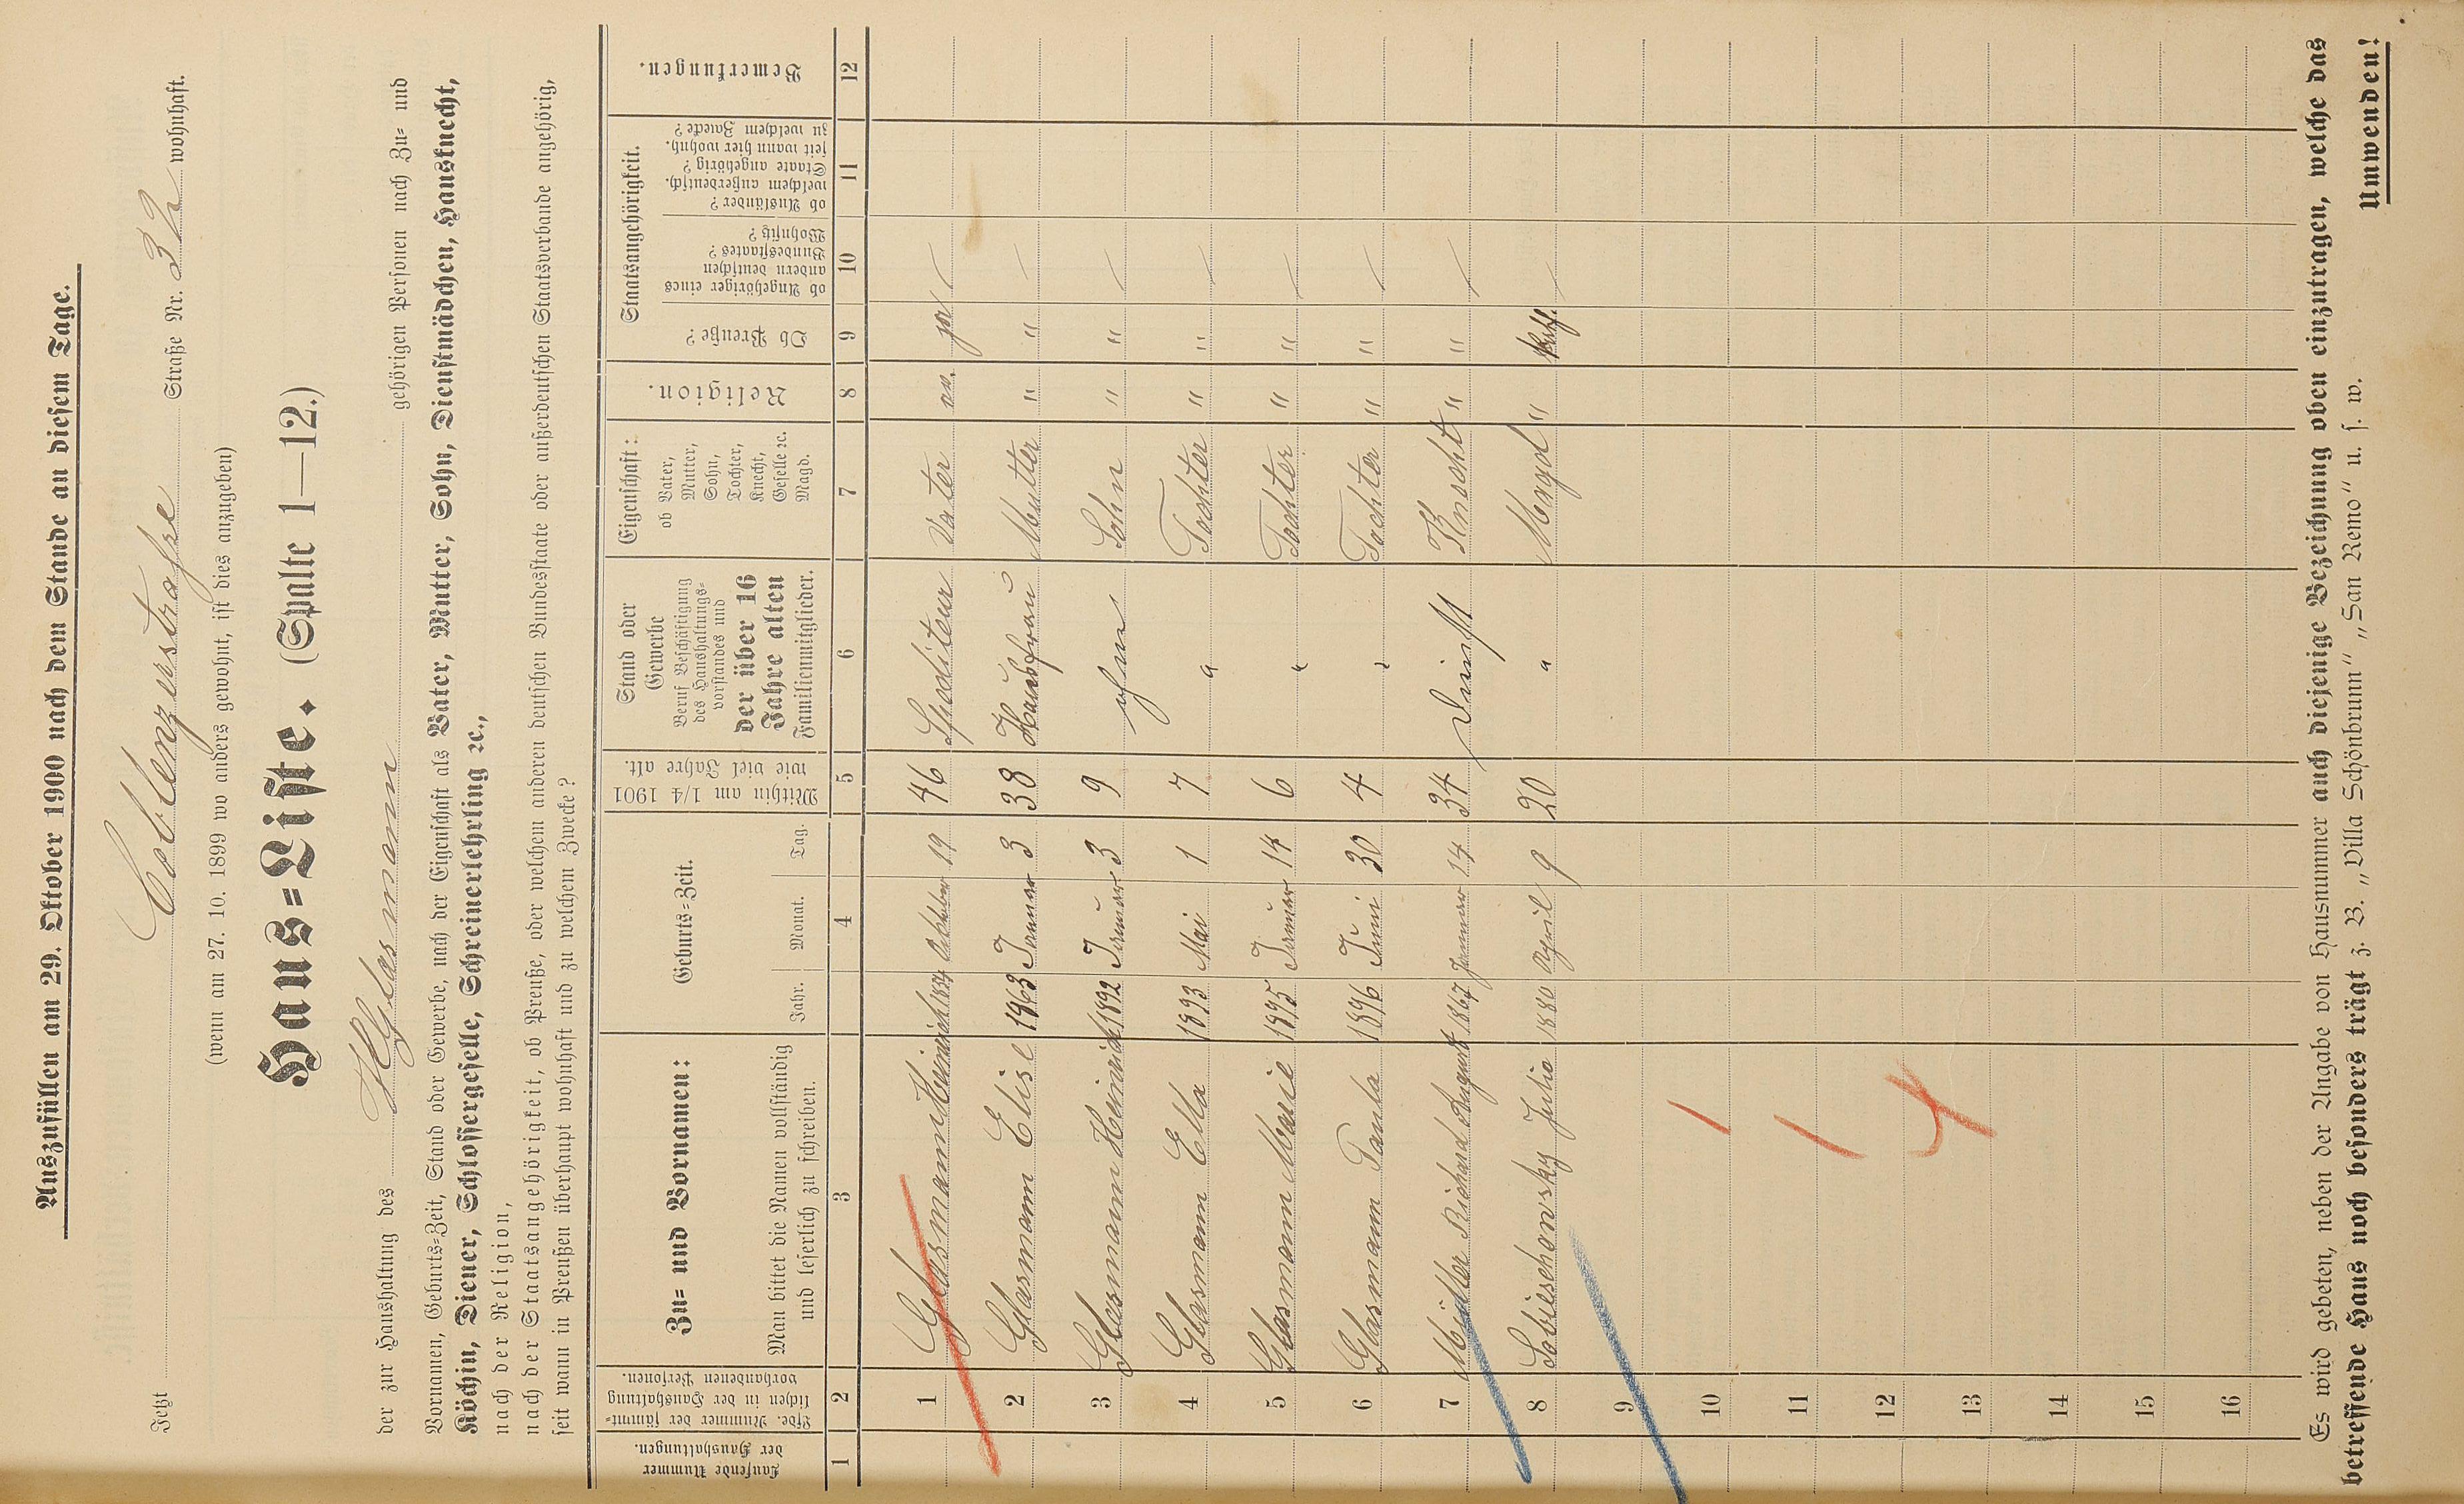 Auszufüllen am 29. Oktober 1900 nach dem Stande an diesem Tage.
Jetzt Coblenzerstraße Straße Nr. wohnhaft.
(wenn am 27. 10. 1899 wo anders gewohnt, ist dies anzugeben)
Haus=Liste. (Spalte 1—12.)
der zur Haushaltung des H Glasmann gehörigen Personen nach Zu= und
Vornamen, Geburts=Zeit, Stand oder Gewerbe, nach der Eigenschaft als Vater, Mutter, Sohn, Dienstmädchen, Hausknecht,
Köchin, Diener, Schlossergeselle, Schreinerlehrling ꝛc.,
nach der Religion,
nach der Staatsangehörigkeit, ob Preuße, oder welchem anderen deutschen Bundesstaate oder außerdeutschen Staatsverbande angehörig,
seit wann in Preußen überhaupt wohnhaft und zu welchem Zwecke?
Laufende Nummer der Haushaltungen.
Lfde. Nummer der sämmt=lichen in der Haushaltung vorhandenen Personen.
Zu= und Vornamen:
Man bittet die Namen vollständig und leserlich zu schreiben.
Geburts=Zeit.
Jahr. Monat. Tag.
Mithin am 1/4 1901 wie viel Jahre alt.
Stand oder Gewerbe
Beruf Beschäftigung des Haushaltungs=vorstandes und der über 16 Jahre alten Familienmitglieder.
Eigenschaft:
ob Vater, Mutter, Sohn, Tochter, Knecht, Geselle ꝛc. Magd.
Religion.
Staatsangehörigkeit.
Ob Preuße?
ob Angehöriger eines andern deutschen Bundesstaates? Wohnsitz?
ob Ausländer? welchem außerdeutsch. Staate angehörig? seit wann hier wohnh. zu welchem Zwecke?
Bemerkungen.
1 2 3 4 5 6 7 8 9 10 11 12
1 Glasmann Heinrich 1854 Oktober 19 46 Spediteur Vater ev. ja
2 Glasmann Elise 1863 Januar 3 38 Hausfrau Mutter " "
3 Glasmann Heinrich 1892 Januar 3 9 ohne Sohn " "
4 Glasmann Ella 1893 Mai 1 7 " Tochter " "
5 Glasmann Marie 1895 Januar 14 6 " Tochter " "
6 Glasmann Paula 1896 Juni 30 4 " Tochter " "
7 Müller Richard August 1867 Januar 14 34 Dienst Knecht " "
8 Sobieschowsky Julie 1880 April 9 20 " Magd "
9
10
11
12
13
14
15
16
Es wird gebeten, neben der Angabe von Hausnummer auch diejenige Bezeichnung oben einzutragen, welche das
betreffende Haus noch besonders trägt z. B. „Villa Schönbrunn“ „San Remo“ u. s. w.
Umwenden!